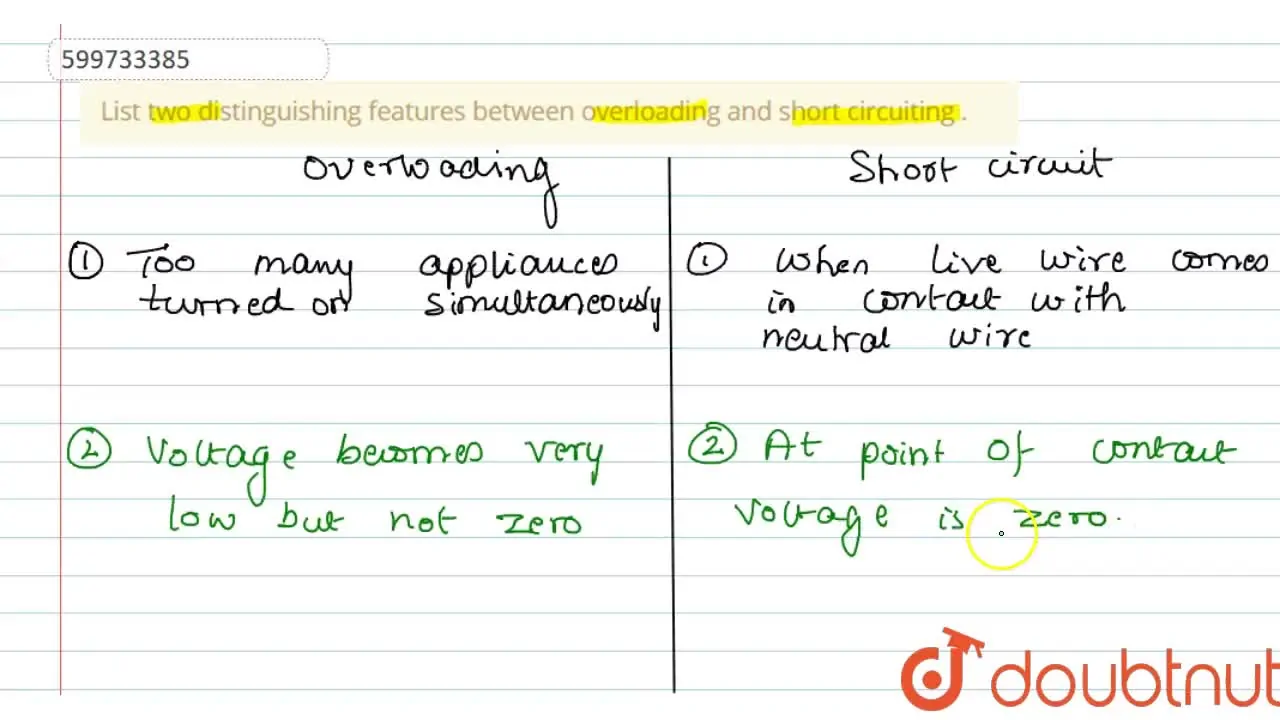 599733385
List two distinguishing features between overloading and short circuiting .
Overloading
Short circuit
① Too many appliances
turned on simultaneously
① When live wire comes
in contact with
neutral wire
② Voltage becomes very
low but not zero
② At point of contact
voltage is zero.
doubtnut